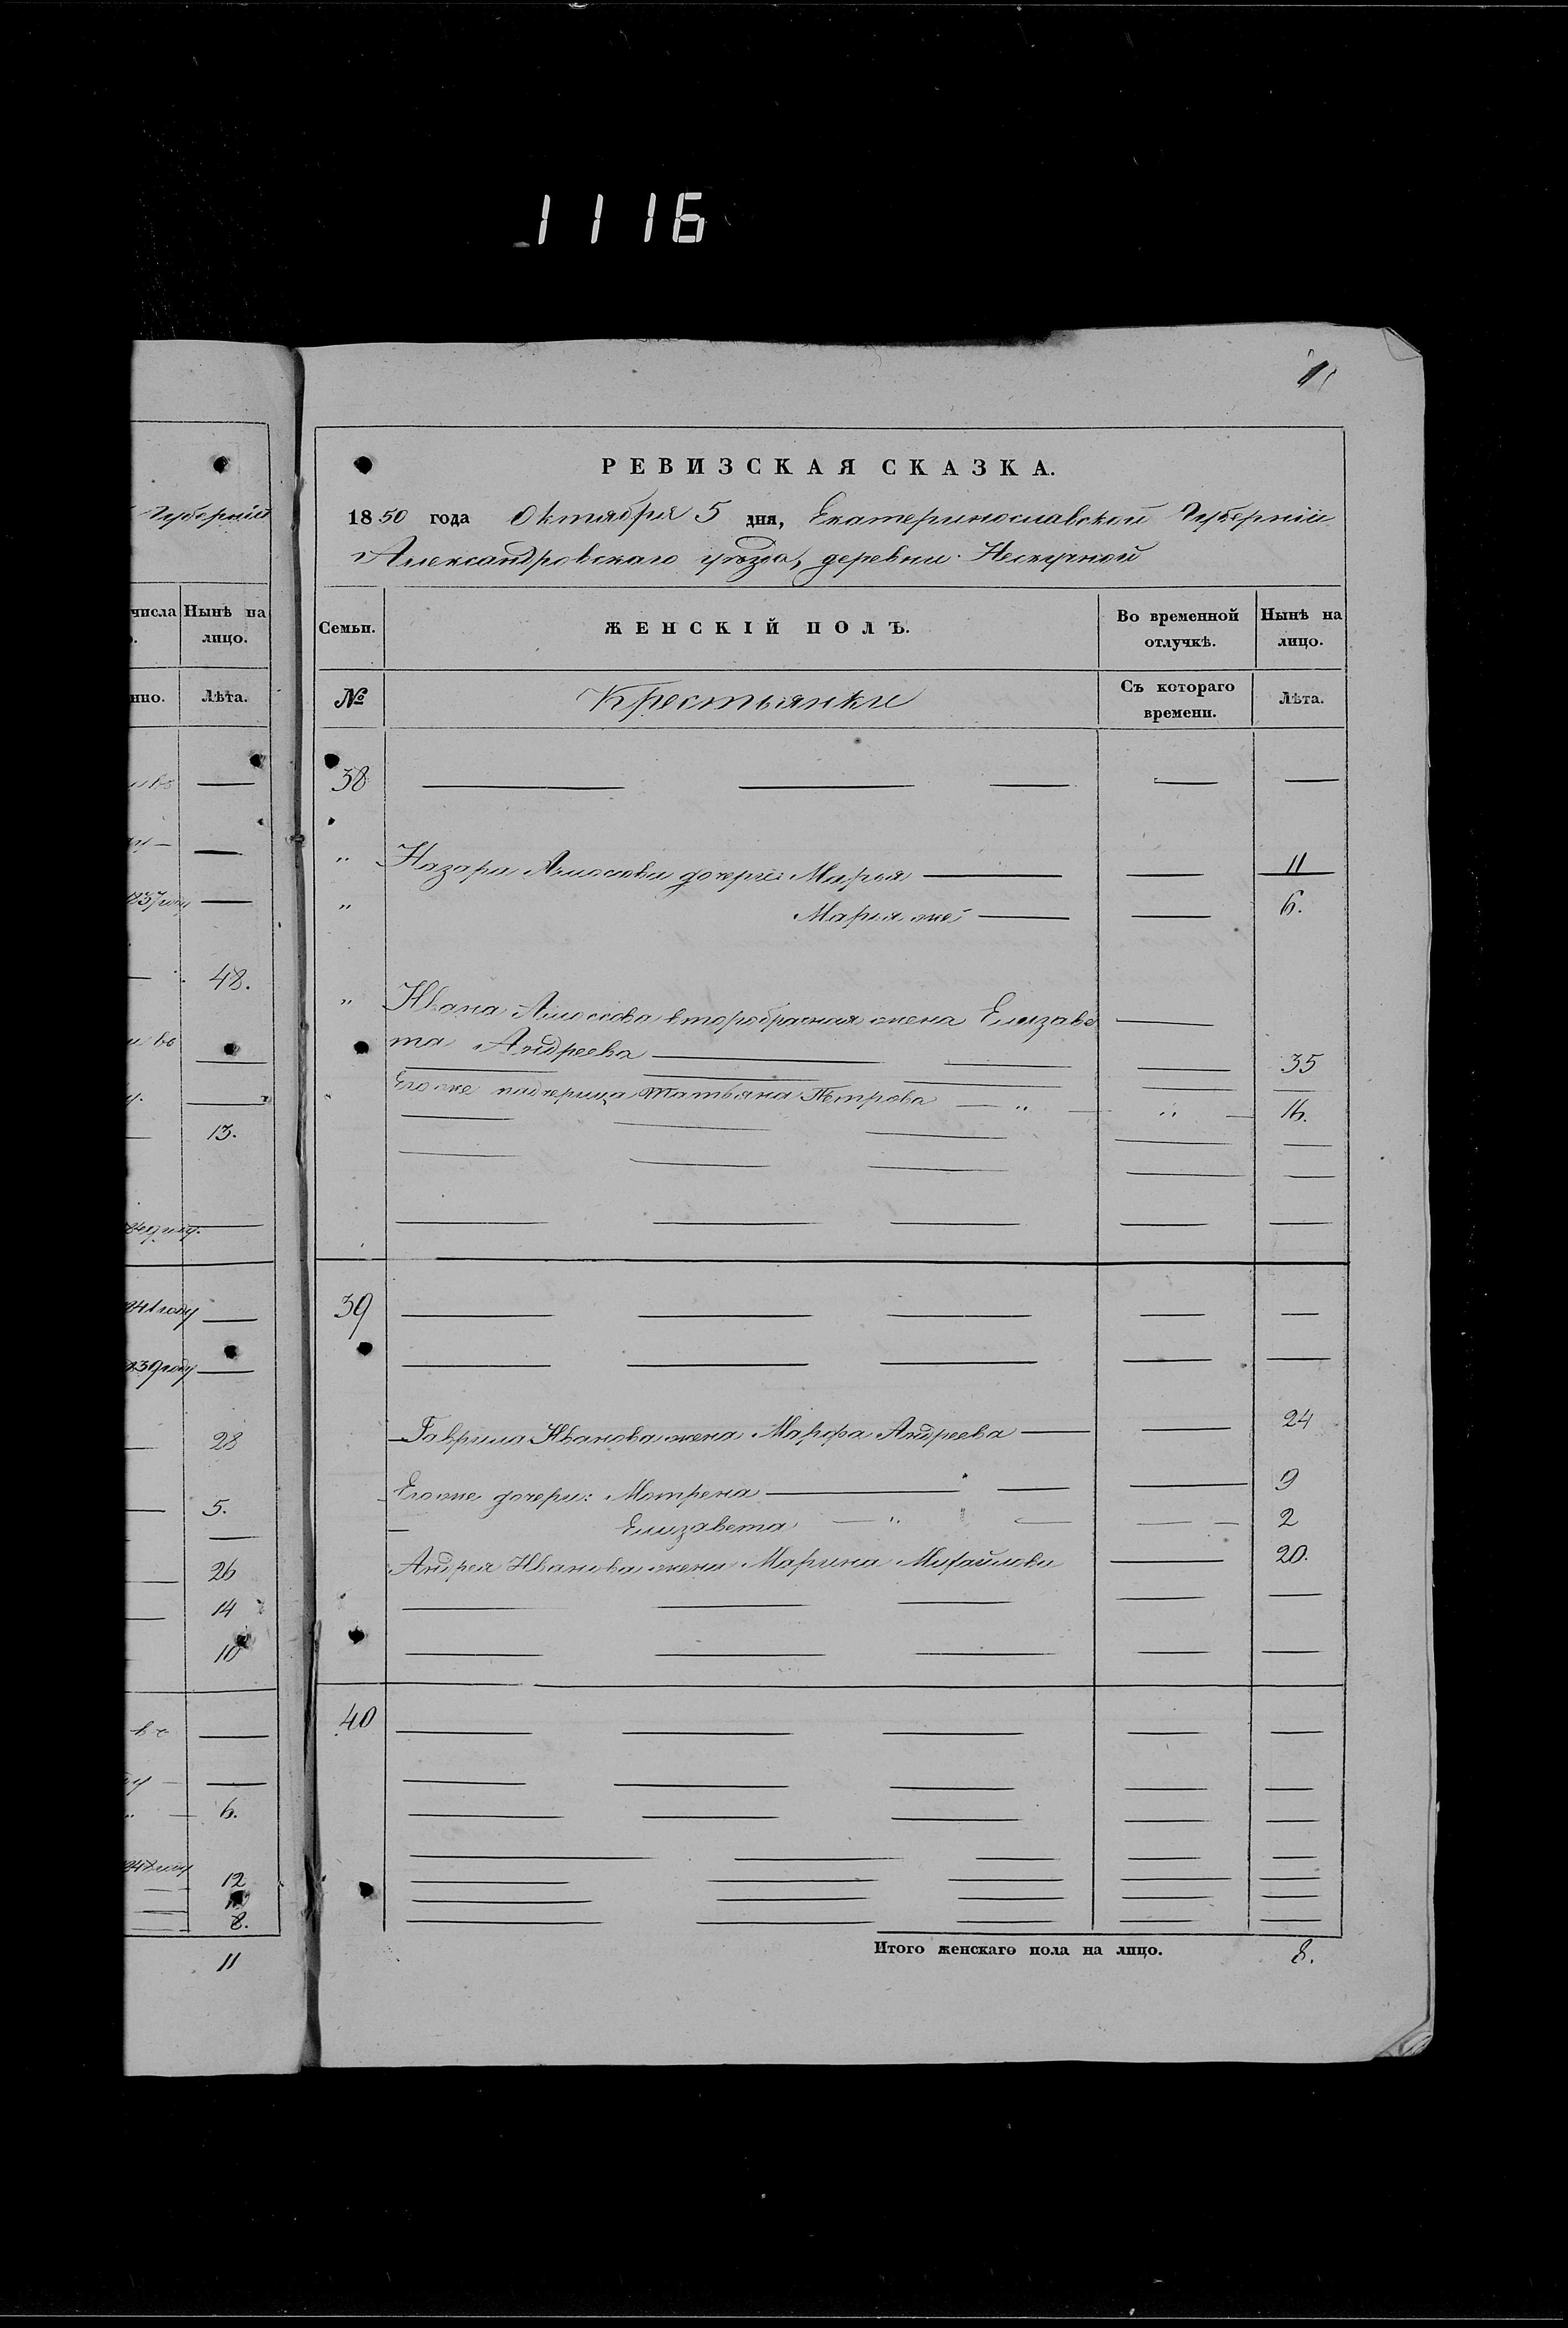 1116
11
РЕВИЗСКАЯ СКАЗКА.
1850 года Октября 5 дня, Екатеринославской Губерніи
Александровскаго уѣзда, деревни Нескучной
Семьи.
ЖЕНСКІЙ ПОЛЪ.
Во временной отлучкѣ.
Нынѣ на лицо.
№
Крестьянки
Съ котораго времени.
Лѣта.
38
" Назара Амосова дочери: Марья 11
" Марья же 6.
" Ивана Амосова второбрачная жена Елизаве
та Андреева 35
" Его же падчерица Татьяна Петрова " " 16.
39
Гаврила Иванова жена Марфа Андреева 24
Его же дочери: Мотрена 9
Елизавета " 2
Андрея Иванова жена Марина Михайлова 20.
40
Итого женскаго пола на лицо. 8.
Губерніи
числа
Нынѣ на лицо.
нно.
Лѣта.
во
837 году
48.
во
13.
841 году
839 году
28
5.
26
14
10
во
6.
12
8.
11